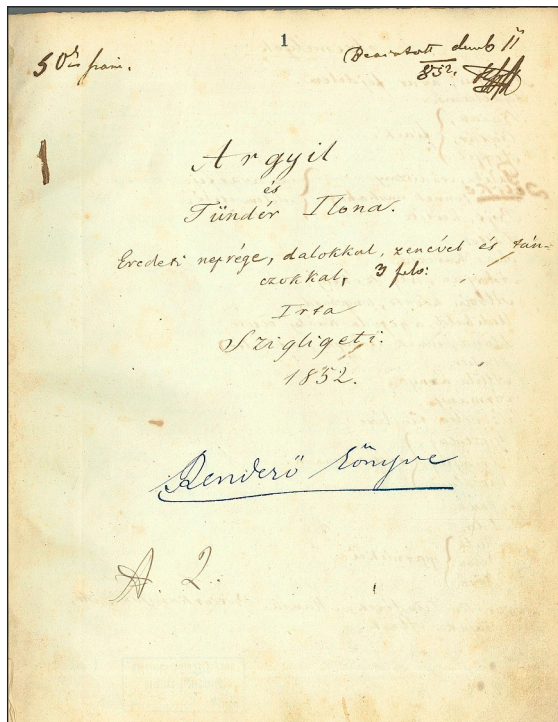 1
Beiktatott
852.
Argyil
és
Tündér Ilona.
Eredeti néprege, dalokkal, zenével és tán-
czokkal, 3 felv:
Irta
Szigligeti.
1852.
Rendező könyve
A. 2.